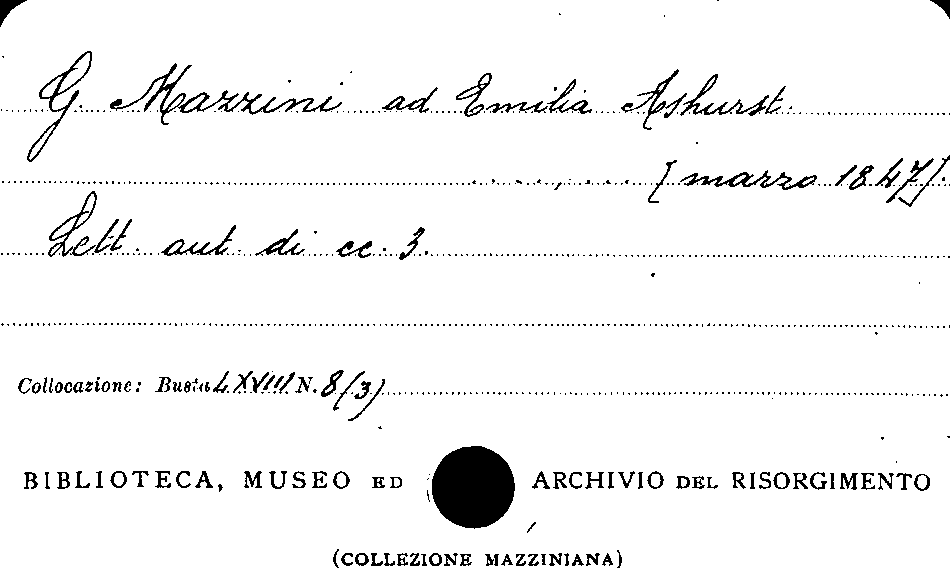 G. Mazzini ad Emilia Ashurst.
...., ... [marzo 1847].
Lett. aut. di cc. 3.
Collocazione: Busta LXVIII N. 8(3)
BIBLIOTECA, MUSEO ED ARCHIVIO DEL RISORGIMENTO
(COLLEZIONE MAZZINIANA)